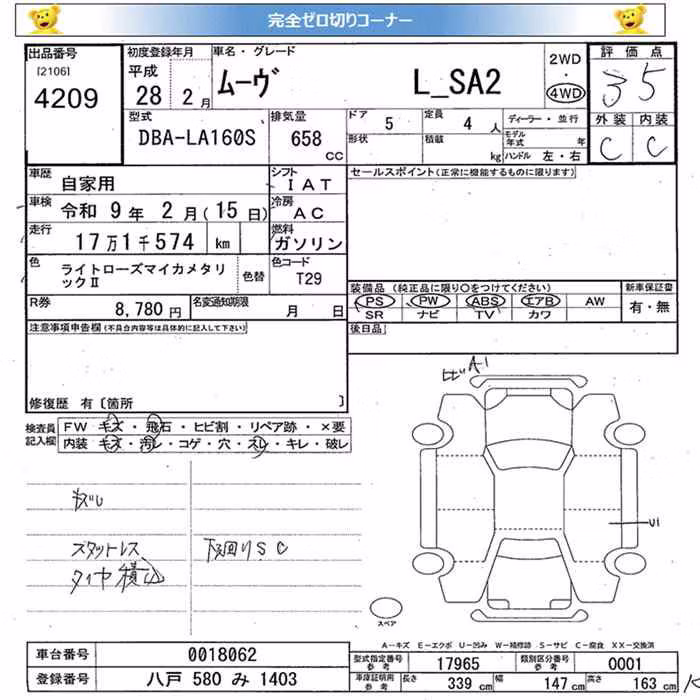 完全ゼロ切りコーナー
出品番号
[2106]
4209
初度登録年月
平成
28 2月
車名・グレード
ムーヴ L_SA2
2WD
・
4WD
評価点
35
型式
DBA-LA160S
排気量
658
CC
ドア 5
定員 4 人
形状
積載 kg
ディーラー・並行
モデル年式 年
ハンドル 左・右
外装 内装
C C
車歴 自家用
シフト IAT
車検 令和 9年 2月(15日)
冷房 AC
走行 17万1千574 km
燃料 ガソリン
色 ライトローズマイカメタリックⅡ
色替
色コード T29
R券 8,780 円
名変通知期限 月 日
セールスポイント(正常に機能するものに限ります)
装備品 (純正品に限り○をつけてください)
新車保証書
PS PW ABS エアB AW
SR ナビ TV カワ
有・無
後日品
注意事項申告欄(不具合内容等は具体的に記入して下さい)
修復歴 有〔箇所 〕
検査員記入欄
FW キズ・飛石・ヒビ割・リペア跡・×要
内装 キズ・汚レ・コゲ・穴・スレ・キレ・破レ
スタットレス
タイヤ積込
下回りSC
ヒビA1
U1
スペア
A－キズ E－エクボ U－凹み W－補修跡 S－サビ C－腐食 XX－交換済
車台番号 0018062
登録番号 八戸 580 み 1403
型式指定番号 参考 17965
類別区分番号 参考 0001
車庫証明用 参考 長さ 339 cm 幅 147 cm 高さ 163 cm